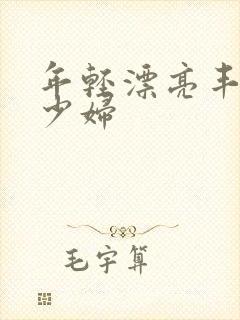 年轻漂亮丰
少妇
毛宇算